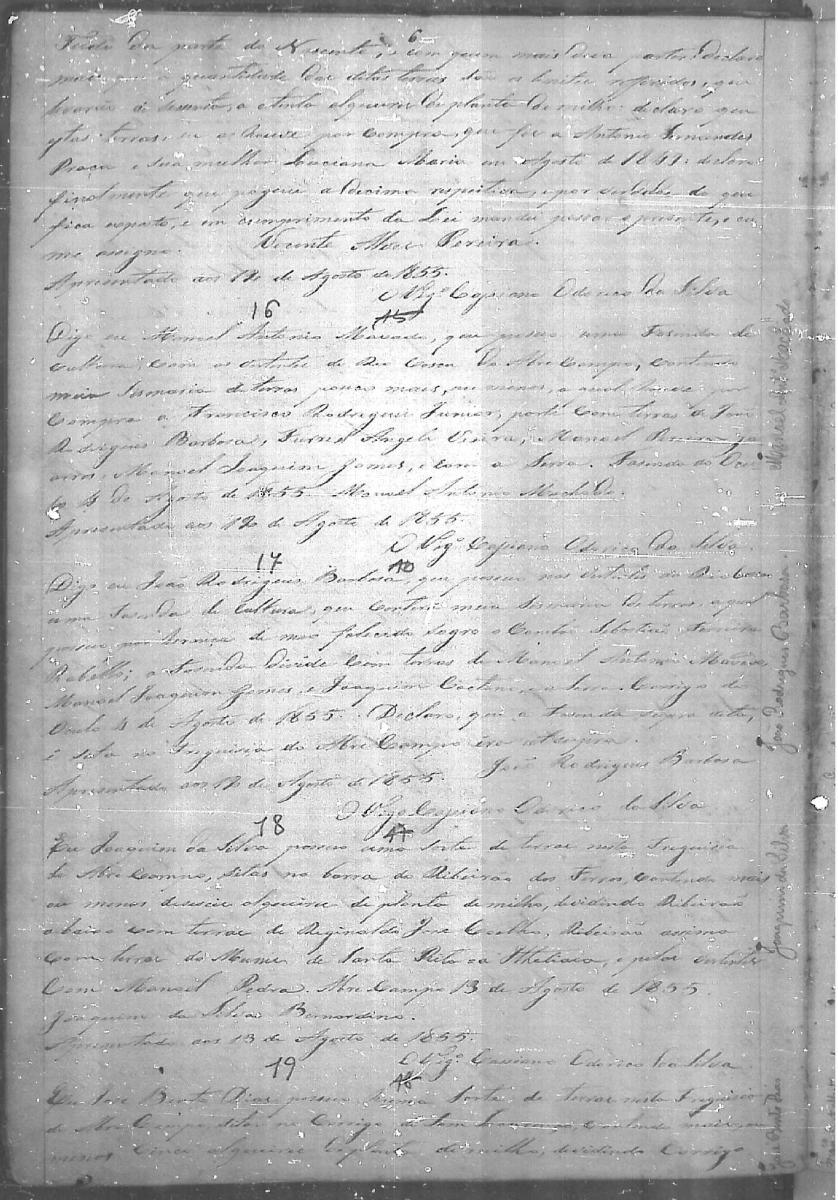 6
da parte do Nascente, e com quem mais deva partir: declaro
mais que a quantidade das ditas terras são os limites referidos, que
levarão de secenta, a oitenta alqueires de planta de milho: declaro que
estas terras, eu as houve por compra, que fiz a Antonio Fernandes
Praça e sua mulher Luciana Maria em Agosto de 1841: declaro
finalmente que paguei a decima respectiva, e por verdade do que
fica exposto, e em cumprimento da Lei mandei passar o presente, e eu
me assigno. Vicente Alves Pereira.
Apresentado aos 12 de Agosto de 1855.
O Vigº Cassiano Oderico da Silva
16
15
Digo eu Manoel Antonio Maxado, que possuo uma Fasenda de
cultura, com as vertentes do Rio Casca do Abre Campo, contendo
meia Sesmaria de terras pouco mais, ou menos, a qual houve por
compra a Francisco Rodrigues Junior, parte com terras de João
Rodrigues Barbosa, Furriel Angelo Vieira, Manoel
Manoel Joaquim Gomes, e com a Serra. Fasenda do
4 de Agosto de 1855. Manoel Antonio Machado.
Apresentado aos 12 de Agosto de 1855.
O Vigº Cassiano Oderico da Silva.
17
16
Digo eu João Rodrigues Barbosa, que possuo nas vertentes do Rio Casca
uma Fasenda de cultura, que conterá meia Sesmaria de terras, a qual
possuo por herança de meu falecido sogro o Sebastião Ferreira
Rabello; a Fasenda divide com terras de Manoel Antonio Maxado,
Manoel Joaquim Gomes, e Joaquim Caetano, e a Serra. Corrigo do
4 de Agosto de 1855. Declaro, que a Fasenda supra dita,
é sita na Freguisia do Abre Campo era ut supra.
João Rodrigues Barbosa
Apresentado aos 12 de Agosto de 1855.
O Vigº Cassiano Oderico da Silva
18
17
Eu Joaquim da Silva possuo uma sorte de terras nesta Freguisia
do Abre Campo, sitas na barra do Ribeirão dos Ferros, contendo mais
ou menos desaseis alqueires de planta de milho, dividindo Ribeirão
abaixo com terras de Reginaldo José Coelho, Ribeirão assima
com terras do de Santa Rita e pelas vertentes
com Manoel Pedra. Abre Campo 13 de Agosto de 1855.
Joaquim da Silva Bernardino.
Apresentado aos 13 de Agosto de 1855.
O Vigº Cassiano Oderico da Silva.
19
18
Eu José Bento Dias possuo huma sorte de terras nesta Freguisia
do Abre Campo, sitas no Corrigo contendo mais, ou
menos cinco alqueires de planta de milho, dividindo Corrigo
Manoel
João Rodrigues Barbosa.
Joaquim da Silva
José Bento Dias